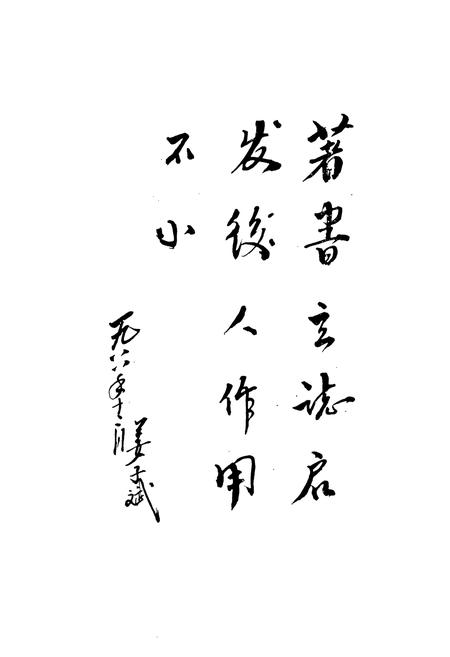 著書立誌启
发後人作用
不小
一九八六年十二月
姜 斌